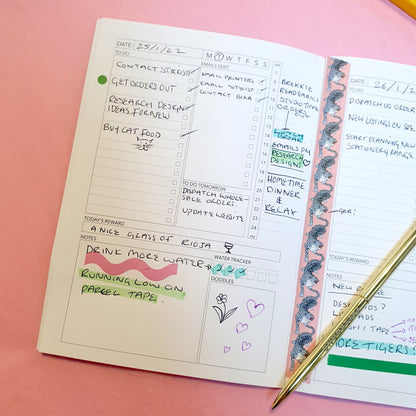 DATE: 25/1/22
M T W T F S S
TO DO
CONTACT STOCKISTS
GET ORDERS OUT
RESEARCH DESIGN
IDEAS FOR NEW
BUY CAT FOOD
EMAILS SENT
EMAIL PRINTERS
EMAIL STYLIST
CONTACT
TO DO TOMORROW
DISPATCH WHOLE-
SALE ORDERS
UPDATE WEBSITE
AM
7
8
9
10
11
12
13
14
15
16
17
18
19
20
21
22
23
24
PM
BREKKIE
READ EMAILS
STUDIO TIME
ORDERS
EMAILS PM
RESEARCH
DESIGNS
HOMETIME
DINNER
&
RELAX
TODAY'S REWARD
A NICE GLASS OF RIOJA
NOTES
DRINK MORE WATER
RUNNING LOW ON
PARCEL TAPE.
WATER TRACKER
DOODLES
grr!
DATE: 26/1/22
TO DO
DISPATCH WO ORDER
NEW LISTING ON
START PLANNING NEW
STATIONERY RANGE
TODAY'S REWARD
NOTES
NEW
DESK PADS?
TAPE
MORE TIGERS